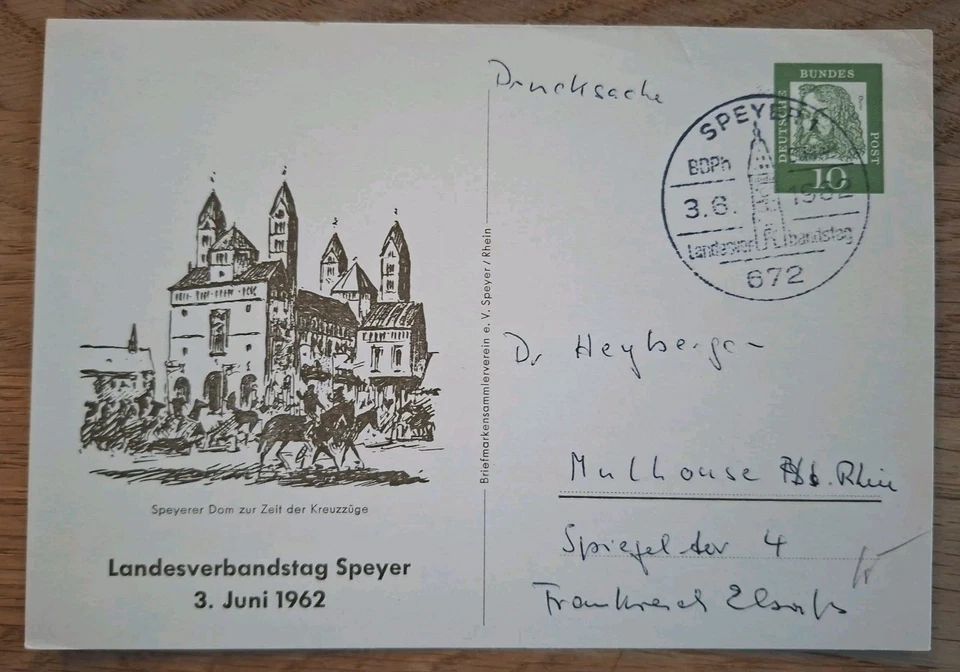 Speyerer Dom zur Zeit der Kreuzzüge
Landesverbandstag Speyer
3. Juni 1962
Briefmarkensammlerverein e. V. Speyer / Rhein
Drucksache
DEUTSCHE
BUNDES
POST
10
SPEYER
BDPh
3.6. 1962
Landesverbandstag
672
Dr Heyberger
Mulhouse Rhin
Spiegeltor 4
Frankreich Elsaß